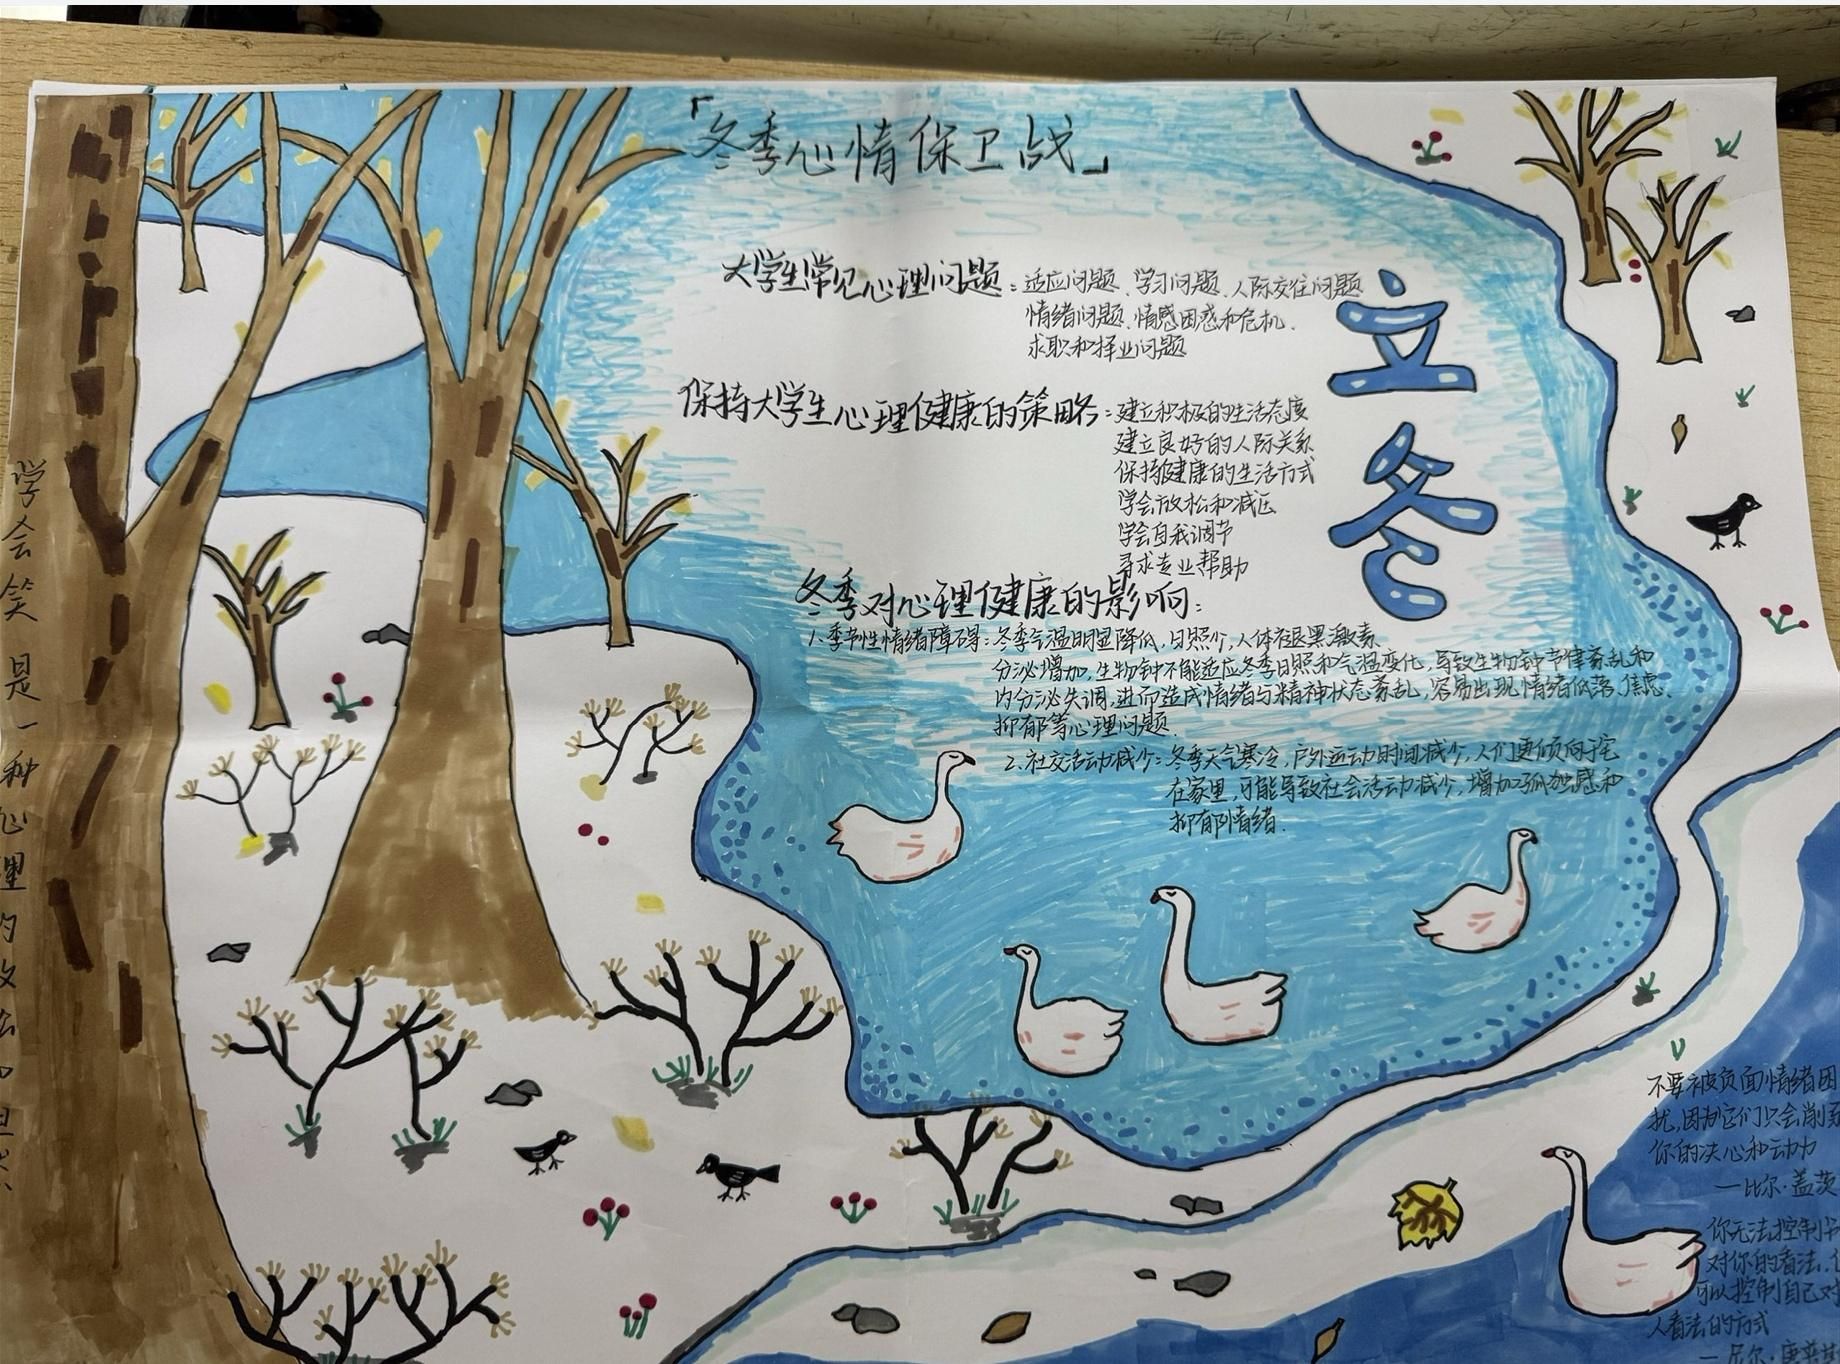 「冬季心情保卫战」
大学生常见心理问题：适应问题、学习问题、人际交往问题
情绪问题、情感困惑和危机、
求职和择业问题
立冬
保持大学生心理健康的策略：建立积极的生活态度
建立良好的人际关系
保持健康的生活方式
学会放松和减压
学会自我调节
寻求专业帮助
冬季对心理健康的影响：
1、季节性情绪障碍：冬季气温明显降低，日照少，人体褪黑激素
分泌增加，生物钟不能适应冬季日照和气温变化，导致生物钟节律紊乱和
内分泌失调，进而造成情绪与精神状态紊乱，容易出现情绪低落、焦虑、
抑郁等心理问题．
2、社交活动减少：冬季天气寒冷，户外运动时间减少，人们更倾向于宅
在家里，可能导致社会活动减少，增加孤独感和
抑郁情绪．
学会笑 是一种心理的
不要被负面情绪困
扰，因为它们只会削
你的决心和动力
—比尔·盖茨
你无法控制
对你的看法，
可以控制自己对
人看法的方式
—尼尔·唐